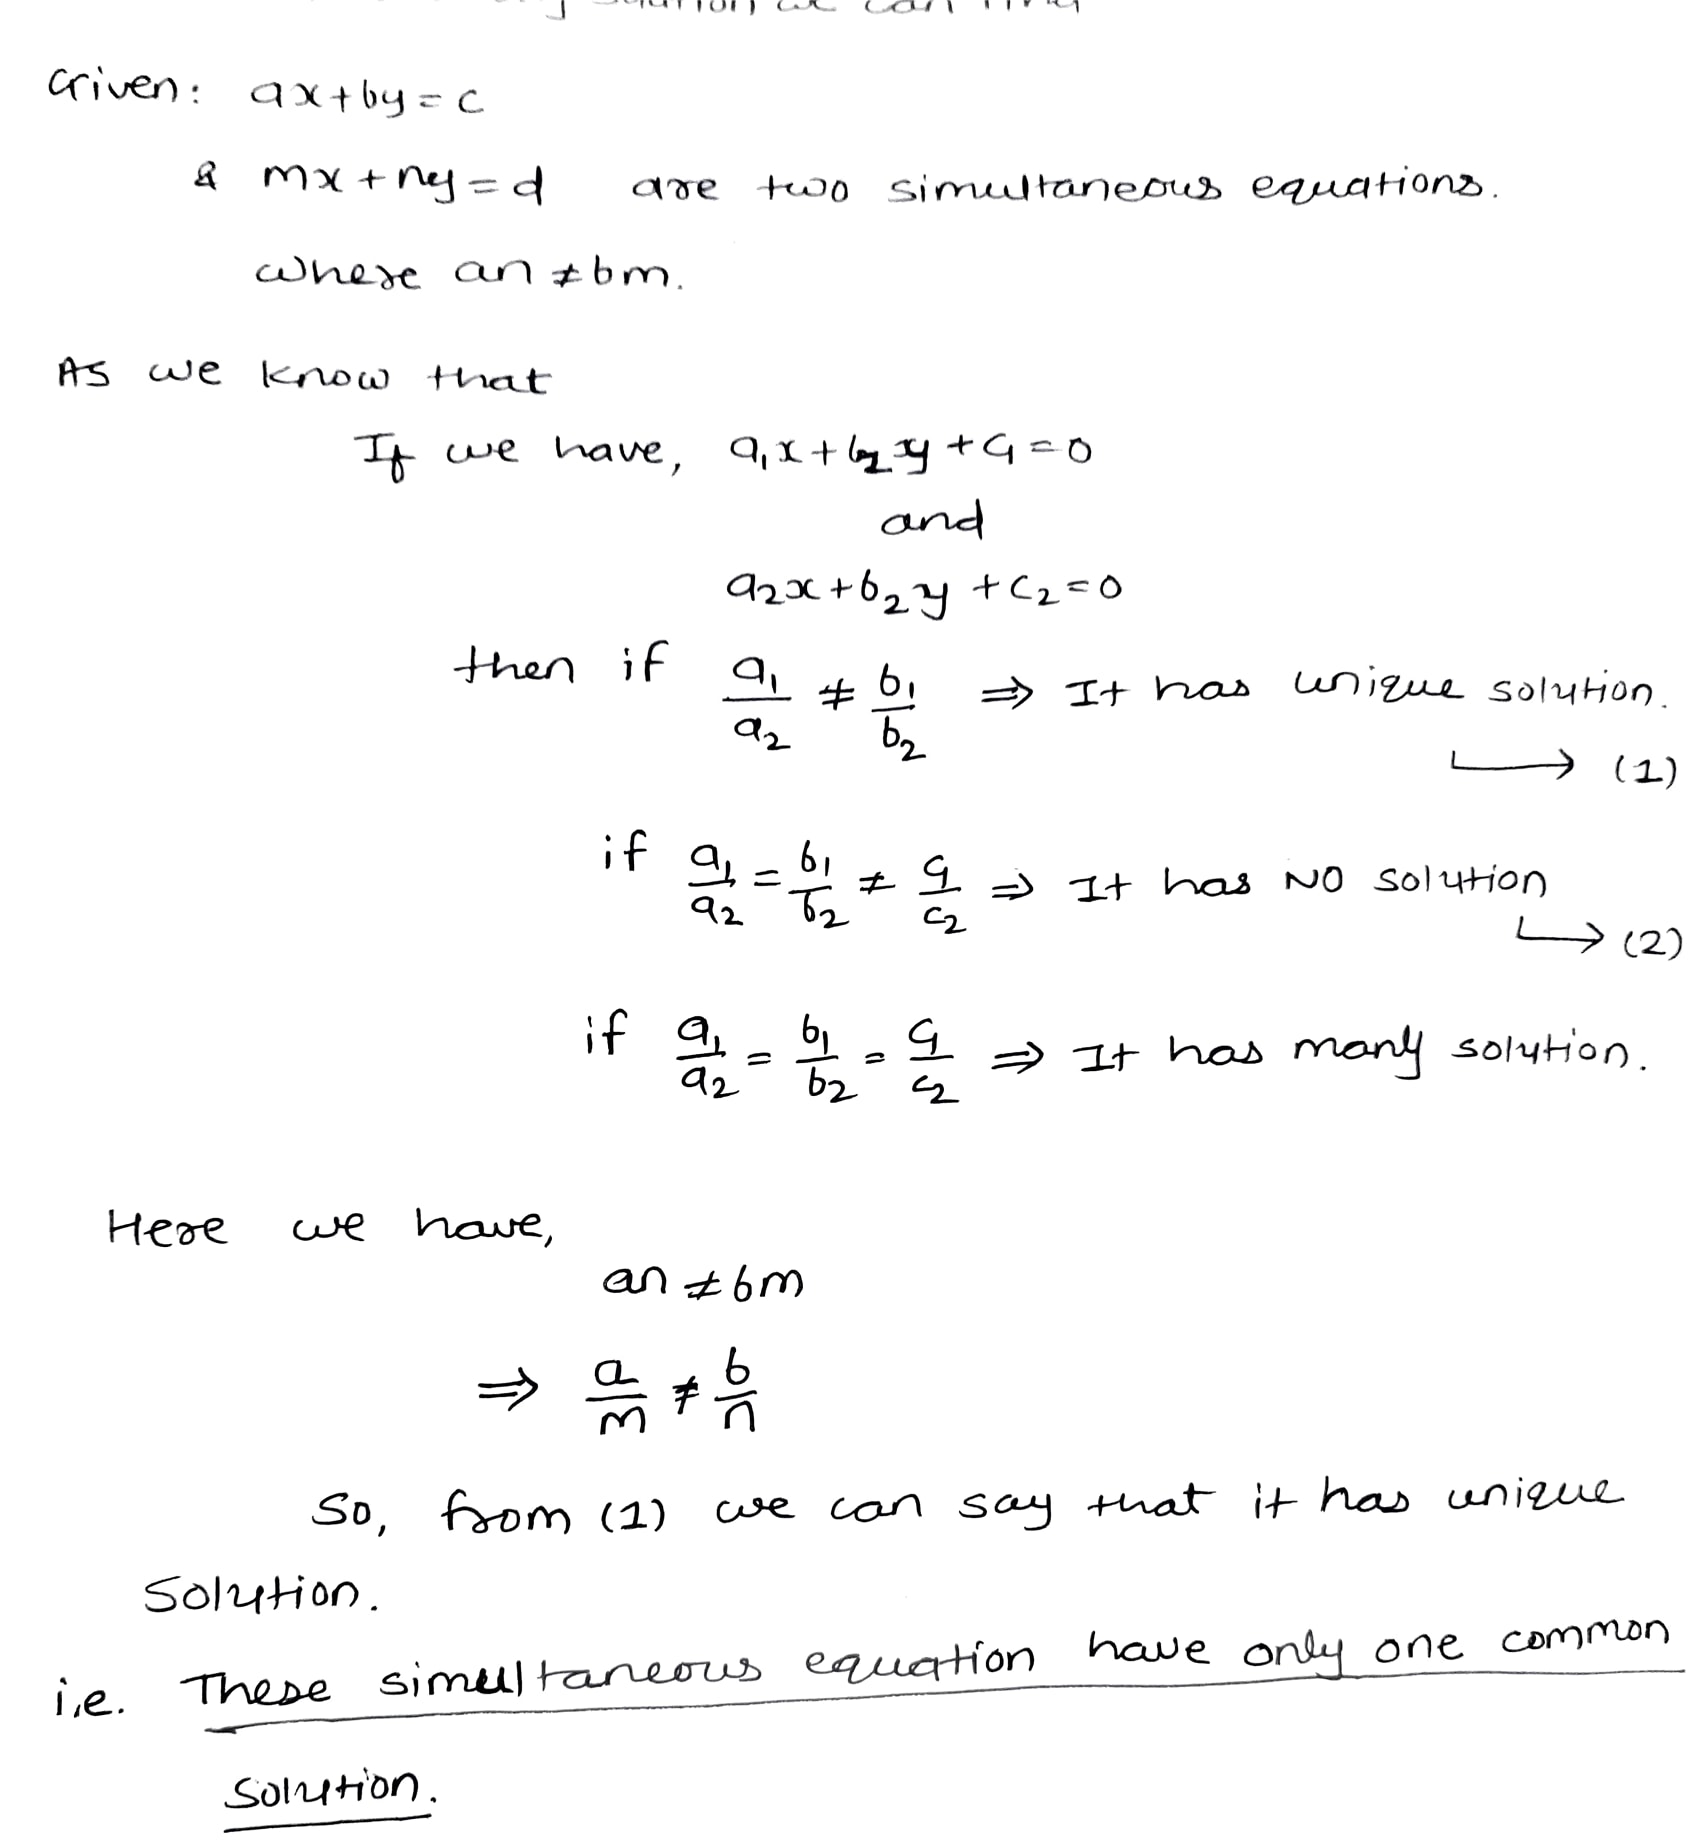 solution we can find
Given: ax+by=c
& mx+ny=d are two simultaneous equations.
where an≠bm.
As we know that
If we have, a₁x+b₂y+c₁=0
and
a₂x+b₂y+c₂=0
then if a₁/a₂ ≠ b₁/b₂ ⇒ It has unique solution.
↳ (1)
if a₁/a₂ = b₁/b₂ ≠ c₁/c₂ ⇒ It has NO solution
↳ (2)
if a₁/a₂ = b₁/b₂ = c₁/c₂ ⇒ It has many solution.
Here we have,
an≠bm
⇒ a/m ≠ b/n
So, from (1) we can say that it has unique
Solution.
i.e. These simultaneous equation have only one common
solution.